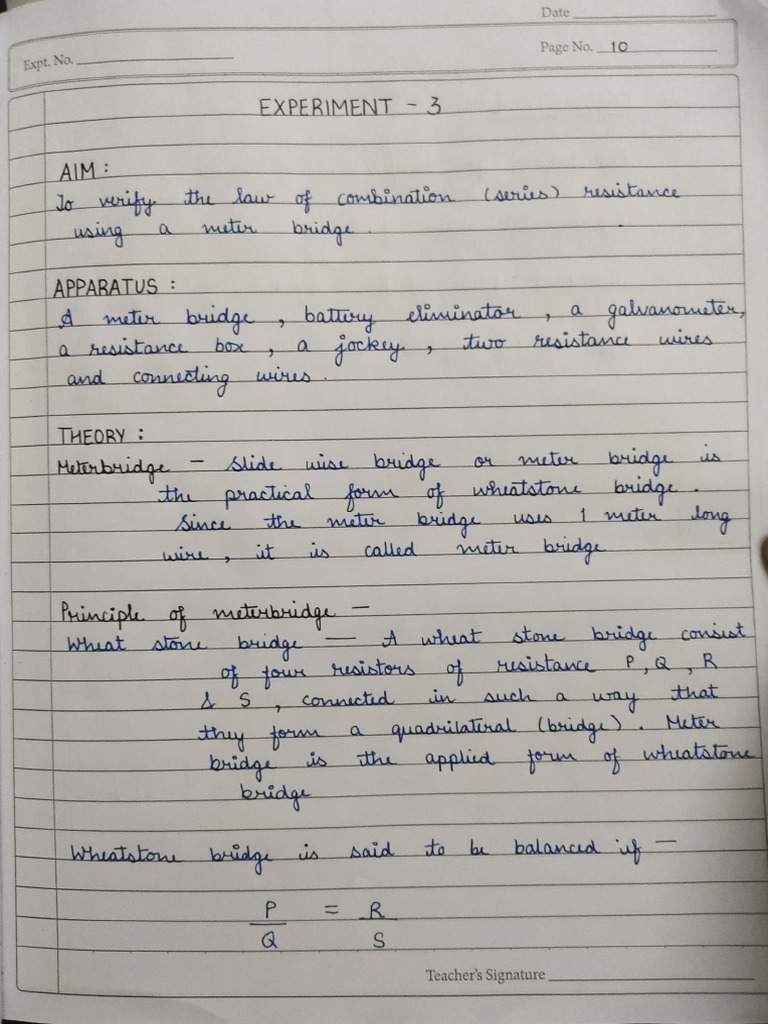 Date
Expt. No.
Page No. 10
EXPERIMENT - 3
AIM :
To verify the law of combination (series) resistance
using a meter bridge.
APPARATUS :
A meter bridge , battery eliminator , a galvanometer,
a resistance box , a jockey , two resistance wires
and connecting wires .
THEORY :
Meterbridge - Slide wise bridge or meter bridge is
the practical form of wheatstone bridge .
Since the meter bridge uses 1 meter long
wire , it is called meter bridge
Principle of meterbridge —
Wheat stone bridge — A wheat stone bridge consist
of four resistors of resistance P, Q , R
& S , connected in such a way that
they form a quadrilateral (bridge) . Meter
bridge is the applied form of wheatstone
bridge
Wheatstone bridge is said to be balanced if —
P = R
Q S
Teacher's Signature